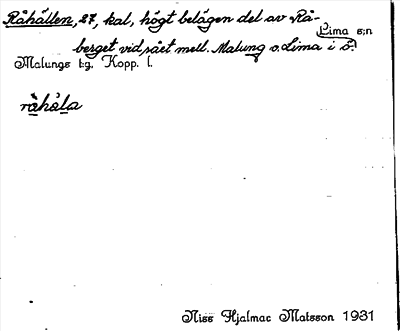 Råhällen, 27, kal, högt belägen del av Rå-
Lima s:n
berget vid rået mell. Malung o. Lima i S.
Malungs tg. Kopp. l.
råhåla
Nils Hjalmar Matsson 1931